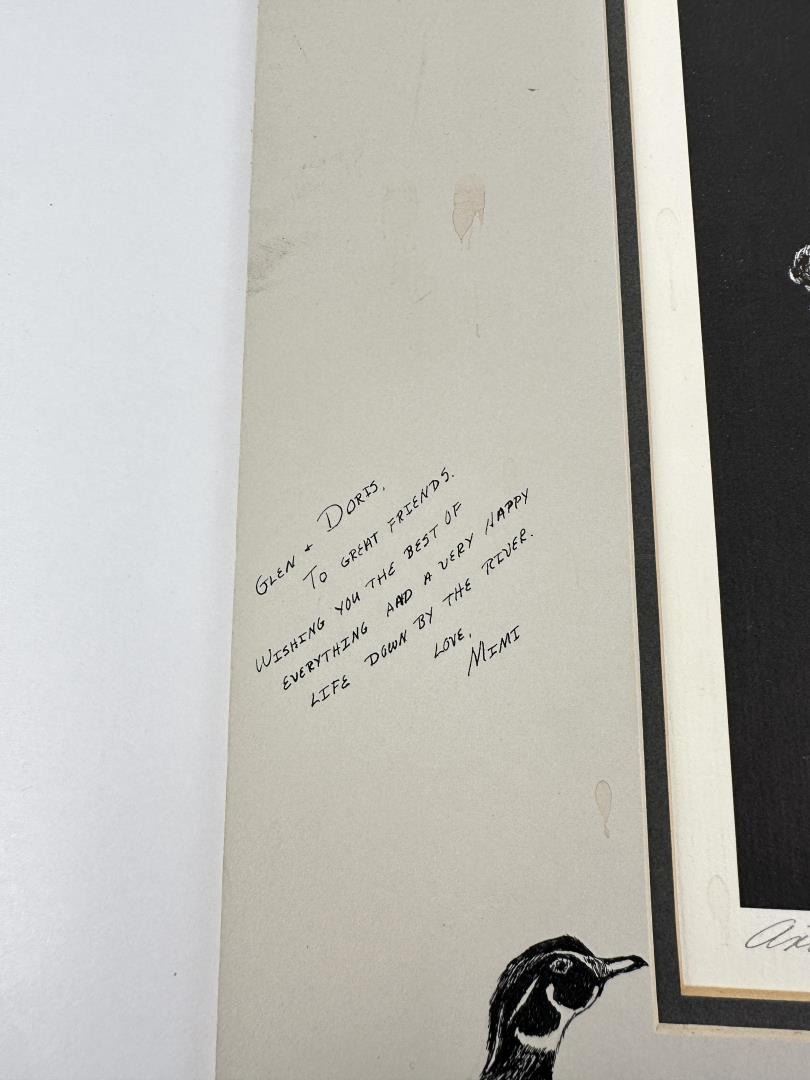 Glen + Doris,
To great friends.
Wishing you the best of
everything and a very happy
life down by the river.
Love,
Mimi